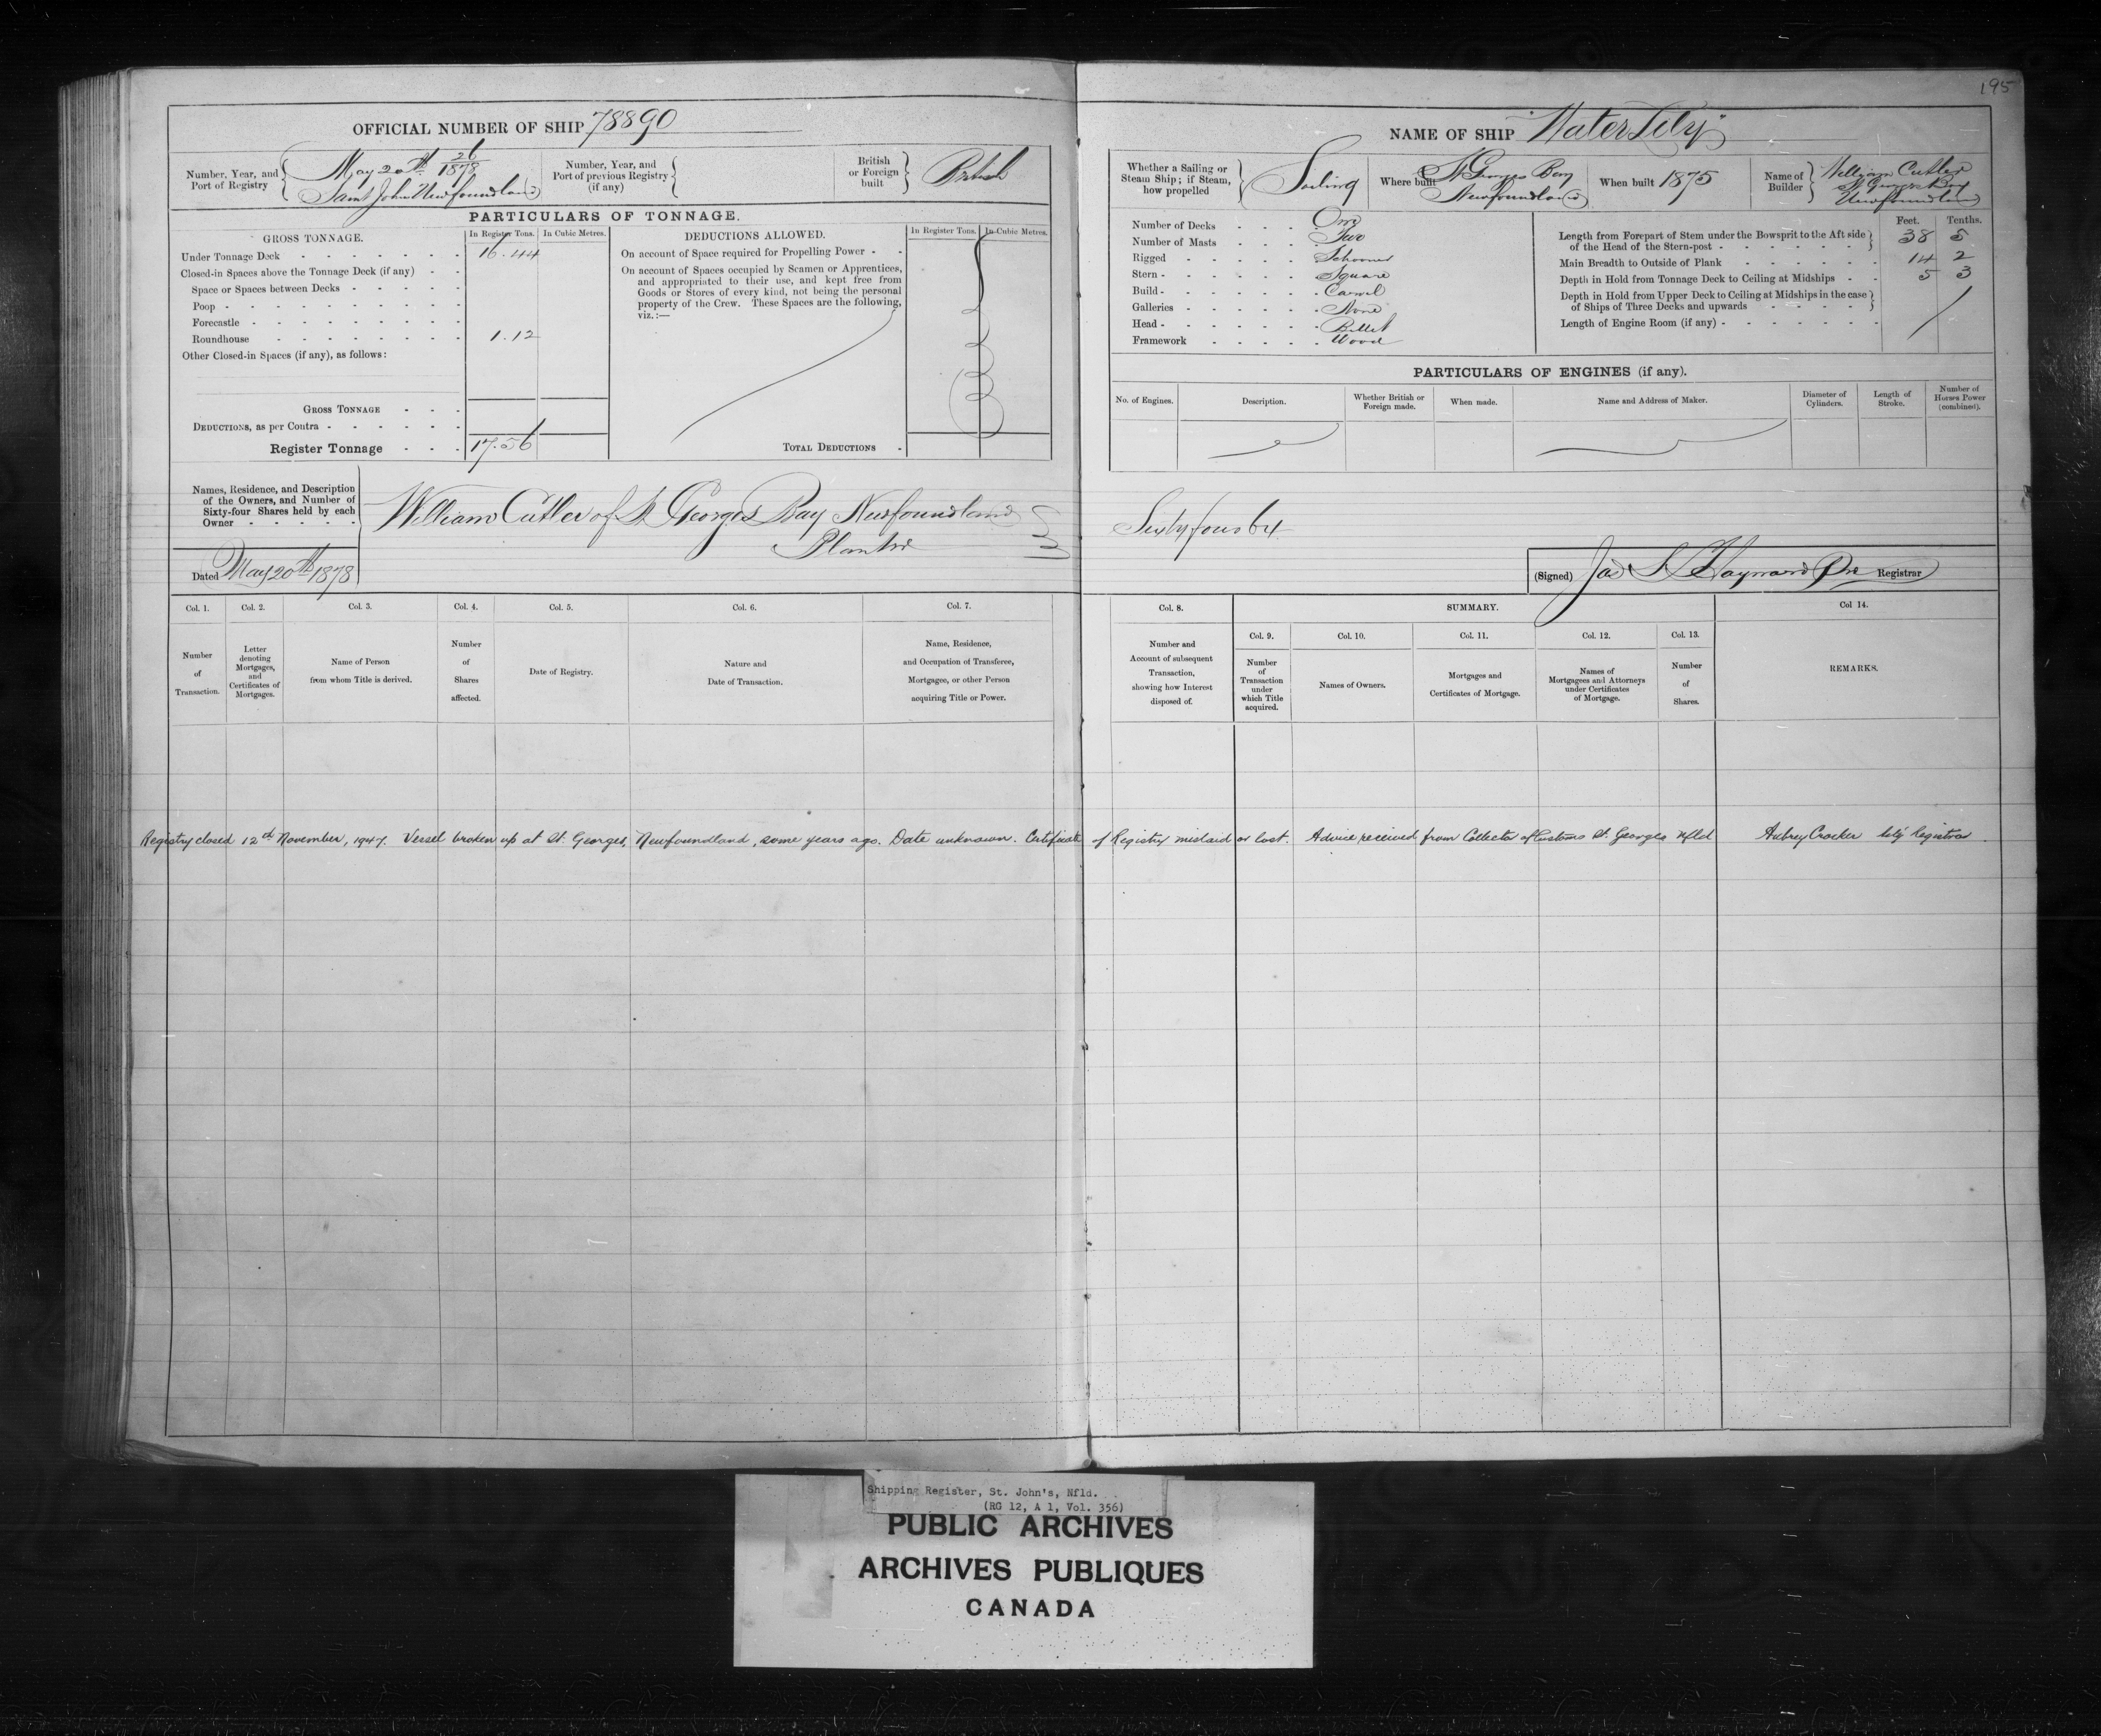 195
OFFICIAL NUMBER OF SHIP 78890
Number, Year, and Port of Registry
May 20th 26/1878
Saint John Newfoundland
Number, Year, and Port of previous Registry (if any)
British or Foreign built
British
PARTICULARS OF TONNAGE.
GROSS TONNAGE.
In Register Tons.
In Cubic Metres.
Under Tonnage Deck 16.44
Closed-in Spaces above the Tonnage Deck (if any)
Space or Spaces between Decks
Poop
Forecastle
Roundhouse 1.12
Other Closed-in Spaces (if any), as follows:
GROSS TONNAGE
DEDUCTIONS, as per Contra
Register Tonnage 17.56
DEDUCTIONS ALLOWED.
In Register Tons.
In Cubic Metres.
On account of Space required for Propelling Power
On account of Spaces occupied by Seamen or Apprentices,
and appropriated to their use, and kept free from
Goods or Stores of every kind, not being the personal
property of the Crew. These Spaces are the following,
viz.:—
TOTAL DEDUCTIONS
Names, Residence, and Description
of the Owners, and Number of
Sixty-four Shares held by each
Owner
William Cutler of St Georges Bay Newfoundland
Planter
Dated May 20th 1878
NAME OF SHIP "Water Lily"
Whether a Sailing or Steam Ship; if Steam, how propelled
Sailing
Where built
St Georges Bay
Newfoundland
When built 1875
Name of Builder
William Cutler
St Georges Bay
Newfoundland
Number of Decks One
Number of Masts Two
Rigged Schooner
Stern Square
Build Carvel
Galleries None
Head Billet
Framework Wood
Feet. Tenths.
Length from Forepart of Stem under the Bowsprit to the Aft side
of the Head of the Stern-post 38 5
Main Breadth to Outside of Plank 14 2
Depth in Hold from Tonnage Deck to Ceiling at Midships 5 3
Depth in Hold from Upper Deck to Ceiling at Midships in the case
of Ships of Three Decks and upwards
Length of Engine Room (if any)
PARTICULARS OF ENGINES (if any).
No. of Engines.
Description.
Whether British or Foreign made.
When made.
Name and Address of Maker.
Diameter of Cylinders.
Length of Stroke.
Number of Horses Power (combined).
Sixty four 64
(Signed) Jas S Hayward Registrar
Col. 1. Number of Transaction.
Col. 2. Letter denoting Mortgages, and Certificates of Mortgages.
Col. 3. Name of Person from whom Title is derived.
Col. 4. Number of Shares affected.
Col. 5. Date of Registry.
Col. 6. Nature and Date of Transaction.
Col. 7. Name, Residence, and Occupation of Transferee, Mortgagee, or other Person acquiring Title or Power.
Col. 8. Number and Account of subsequent Transaction, showing how Interest disposed of.
SUMMARY.
Col. 9. Number of Transaction under which Title acquired.
Col. 10. Names of Owners.
Col. 11. Mortgages and Certificates of Mortgage.
Col. 12. Names of Mortgagees and Attorneys under Certificates of Mortgage.
Col. 13. Number of Shares.
Col 14. REMARKS.
Registry closed 12th November, 1947. Vessel broken up at St. Georges, Newfoundland, some years ago. Date unknown. Certificate of Registry mislaid or lost. Advice received from Collector of Customs St. Georges Nfld Aubrey Crocker Registrar
Shipping Register, St. John's, Nfld.
(RG 12, A 1, Vol. 356)
PUBLIC ARCHIVES
ARCHIVES PUBLIQUES
CANADA